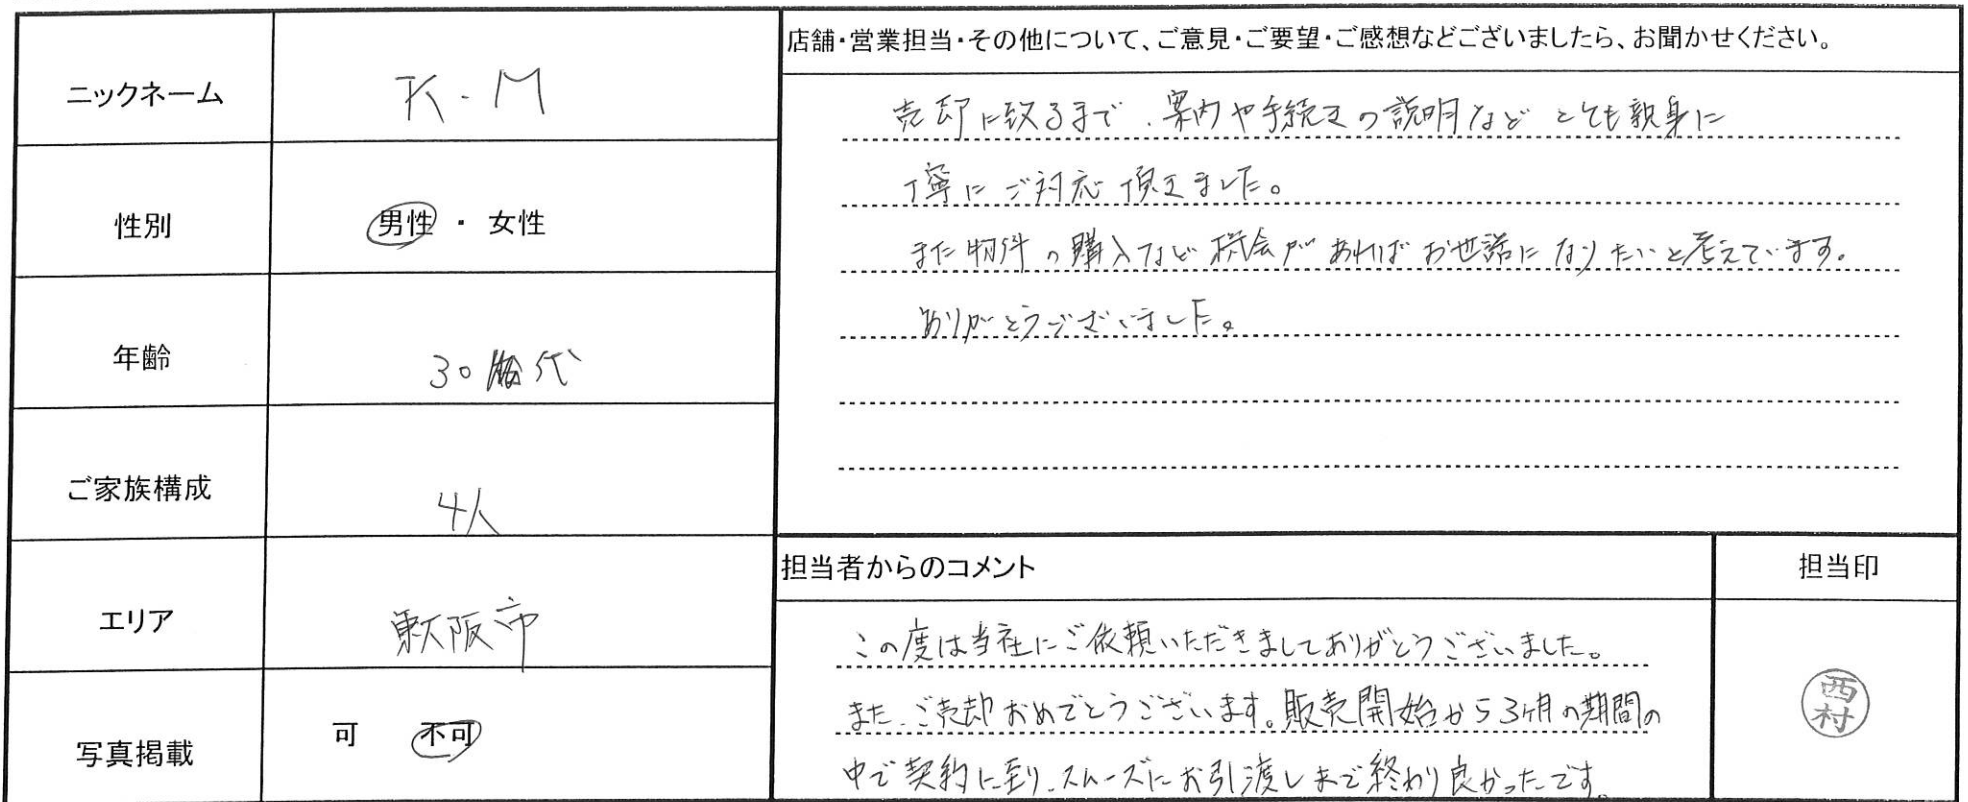 ニックネーム
K.M
性別
男性 ・ 女性
年齢
30代
ご家族構成
4人
エリア
東大阪市
写真掲載
可 不可
店舗・営業担当・その他について、ご意見・ご要望・ご感想などございましたら、お聞かせください。
売却に致るまで、案内や手続きの説明などとても親身に
丁寧にご対応頂きました。
また物件の購入など機会があればお世話になりたいと考えています。
ありがとうございました。
担当者からのコメント
この度は当社にご依頼いただきましてありがとうございました。
また、ご売却おめでとうございます。販売開始から3ヶ月の期間の
中で契約に到り、スムーズにお引渡しまで終わり良かったです。
担当印
西村